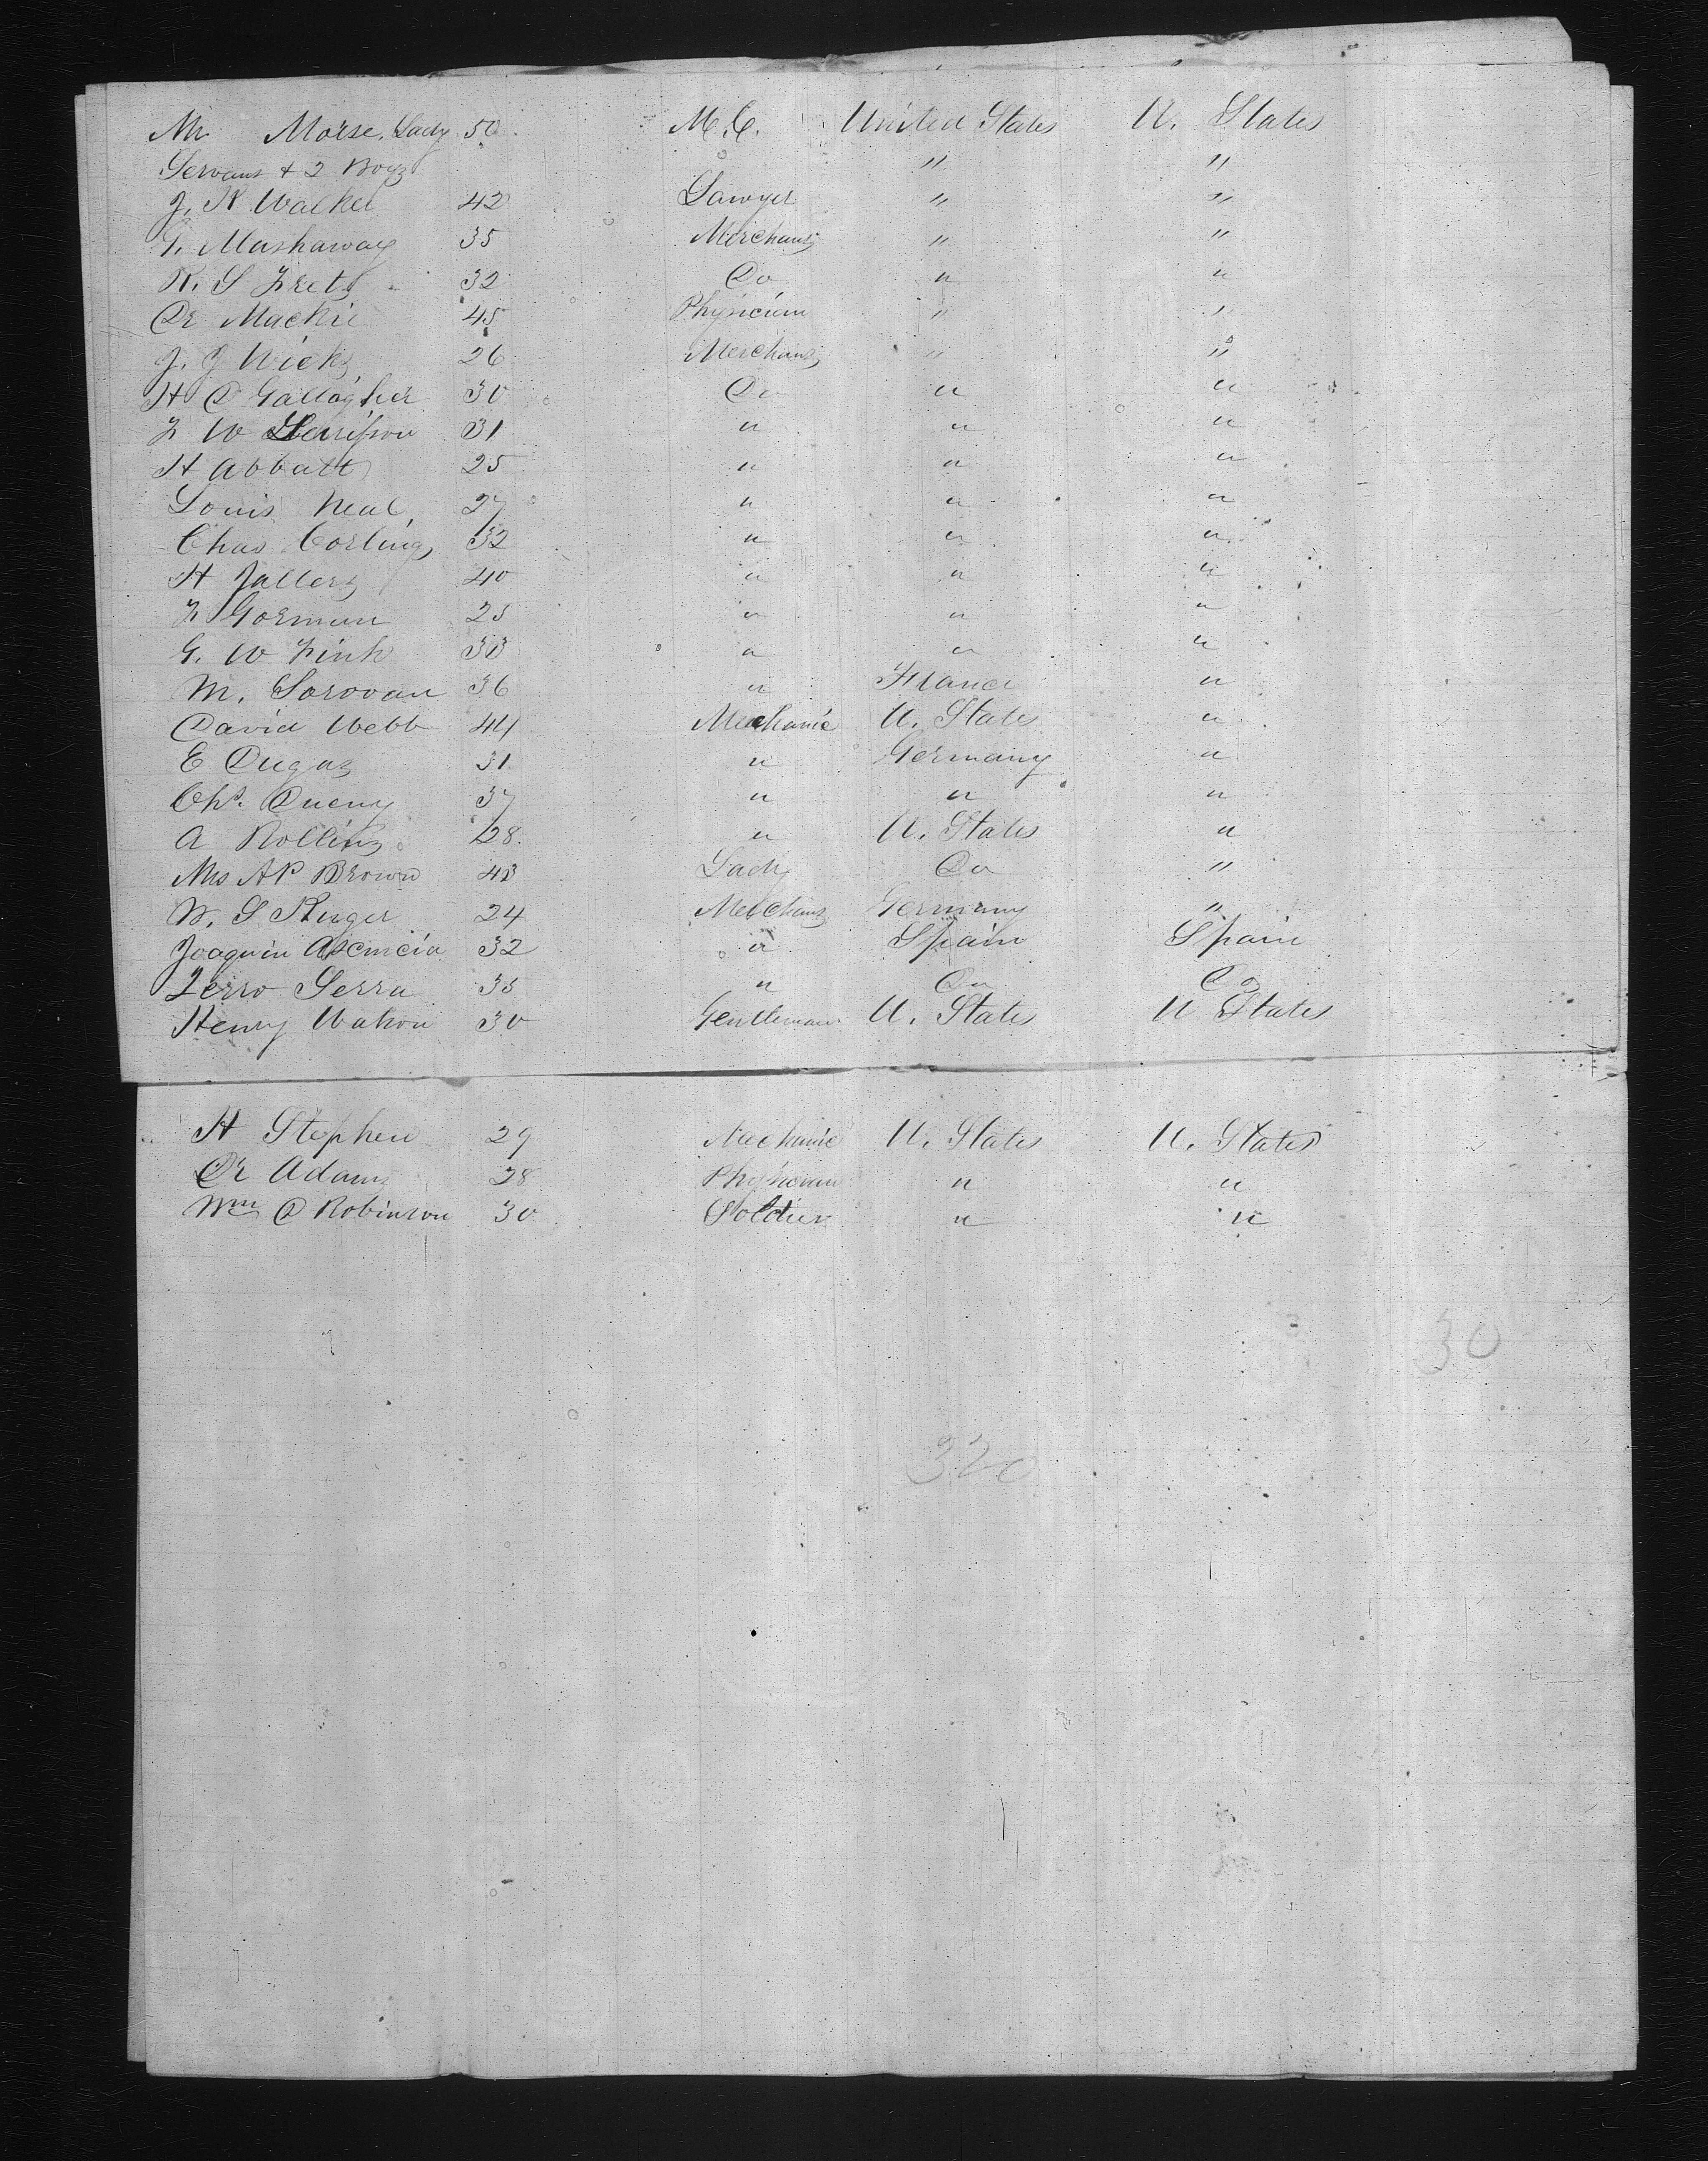 Mr Morse, Lady 50 M.C. United States U. States
Servant + 2 Boys " "
J. R Walker 42 Lawyer " "
G. Mashaway 35 Merchant " "
R. S Frets 32 Do " "
Dr Mackie 45 Physician " "
J. J Wicks 26 Merchant " "
H D Gallagher 30 Do " "
F W 31 " " "
H Abbatt 25 " " "
Louis Neal 27 " " "
Chas Corling 32 " " "
H Jallers 40 " " "
F Gorman 25 " " "
G. W Fink 33 " " "
M. Sorovan 36 " France "
David Webb 44 Mechanic U. States "
E Dugas 31 " Germany "
Chs. Dueny 37 " " "
A Rollins 28 " U. States "
Mrs A P Brown 43 Lady Do "
W. S Ruger 24 Merchant Germany "
Joaquin Ascencia 32 " Spain Spain
Serra 35 " Do Do
Henry Watson 30 Gentleman U. States U States
H Stephen 29 Mechanic U. States U. States
Dr Adams 28 Physician " "
Wm D Robinson 30 Soldier " "
30
320